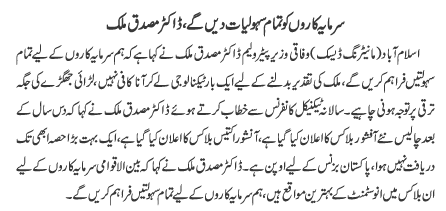 سرمایہ کاروں کو تمام سہولیات دیں گے، ڈاکٹر مصدق ملک
اسلام آباد (مانیٹرنگ ڈیسک) وفاقی وزیر پیٹرولیم ڈاکٹر مصدق ملک نے کہا ہے کہ ہم سرمایہ کاروں کے لیے تمام
سہولتیں فراہم کریں گے، ملک کی تقدیر بدلنے کے لیے ایک بار ٹیکنالوجی لے کر آنا کافی نہیں، لڑائی جھگڑے کی جگہ
ترقی پر توجہ ہونی چاہیے۔ سالانہ ٹیکنیکل کانفرنس سے خطاب کرتے ہوئے ڈاکٹر مصدق ملک نے کہا کہ دس سال کے
بعد چالیس نئے آف شور بلاکس کا اعلان کیا گیا ہے، آن شور اکتیس بلاکس کا اعلان کیا گیا ہے، ایک بہت بڑا حصہ ابھی تک
دریافت نہیں ہوا، پاکستان بزنس کے لیے اوپن ہے۔ ڈاکٹر مصدق ملک نے کہا کہ بین الاقوامی سرمایہ کاروں کے لیے
ان بلاکس میں انوسٹمنٹ کے بہترین مواقع ہیں، ہم سرمایہ کاروں کے لیے تمام سہولتیں فراہم کریں گے۔